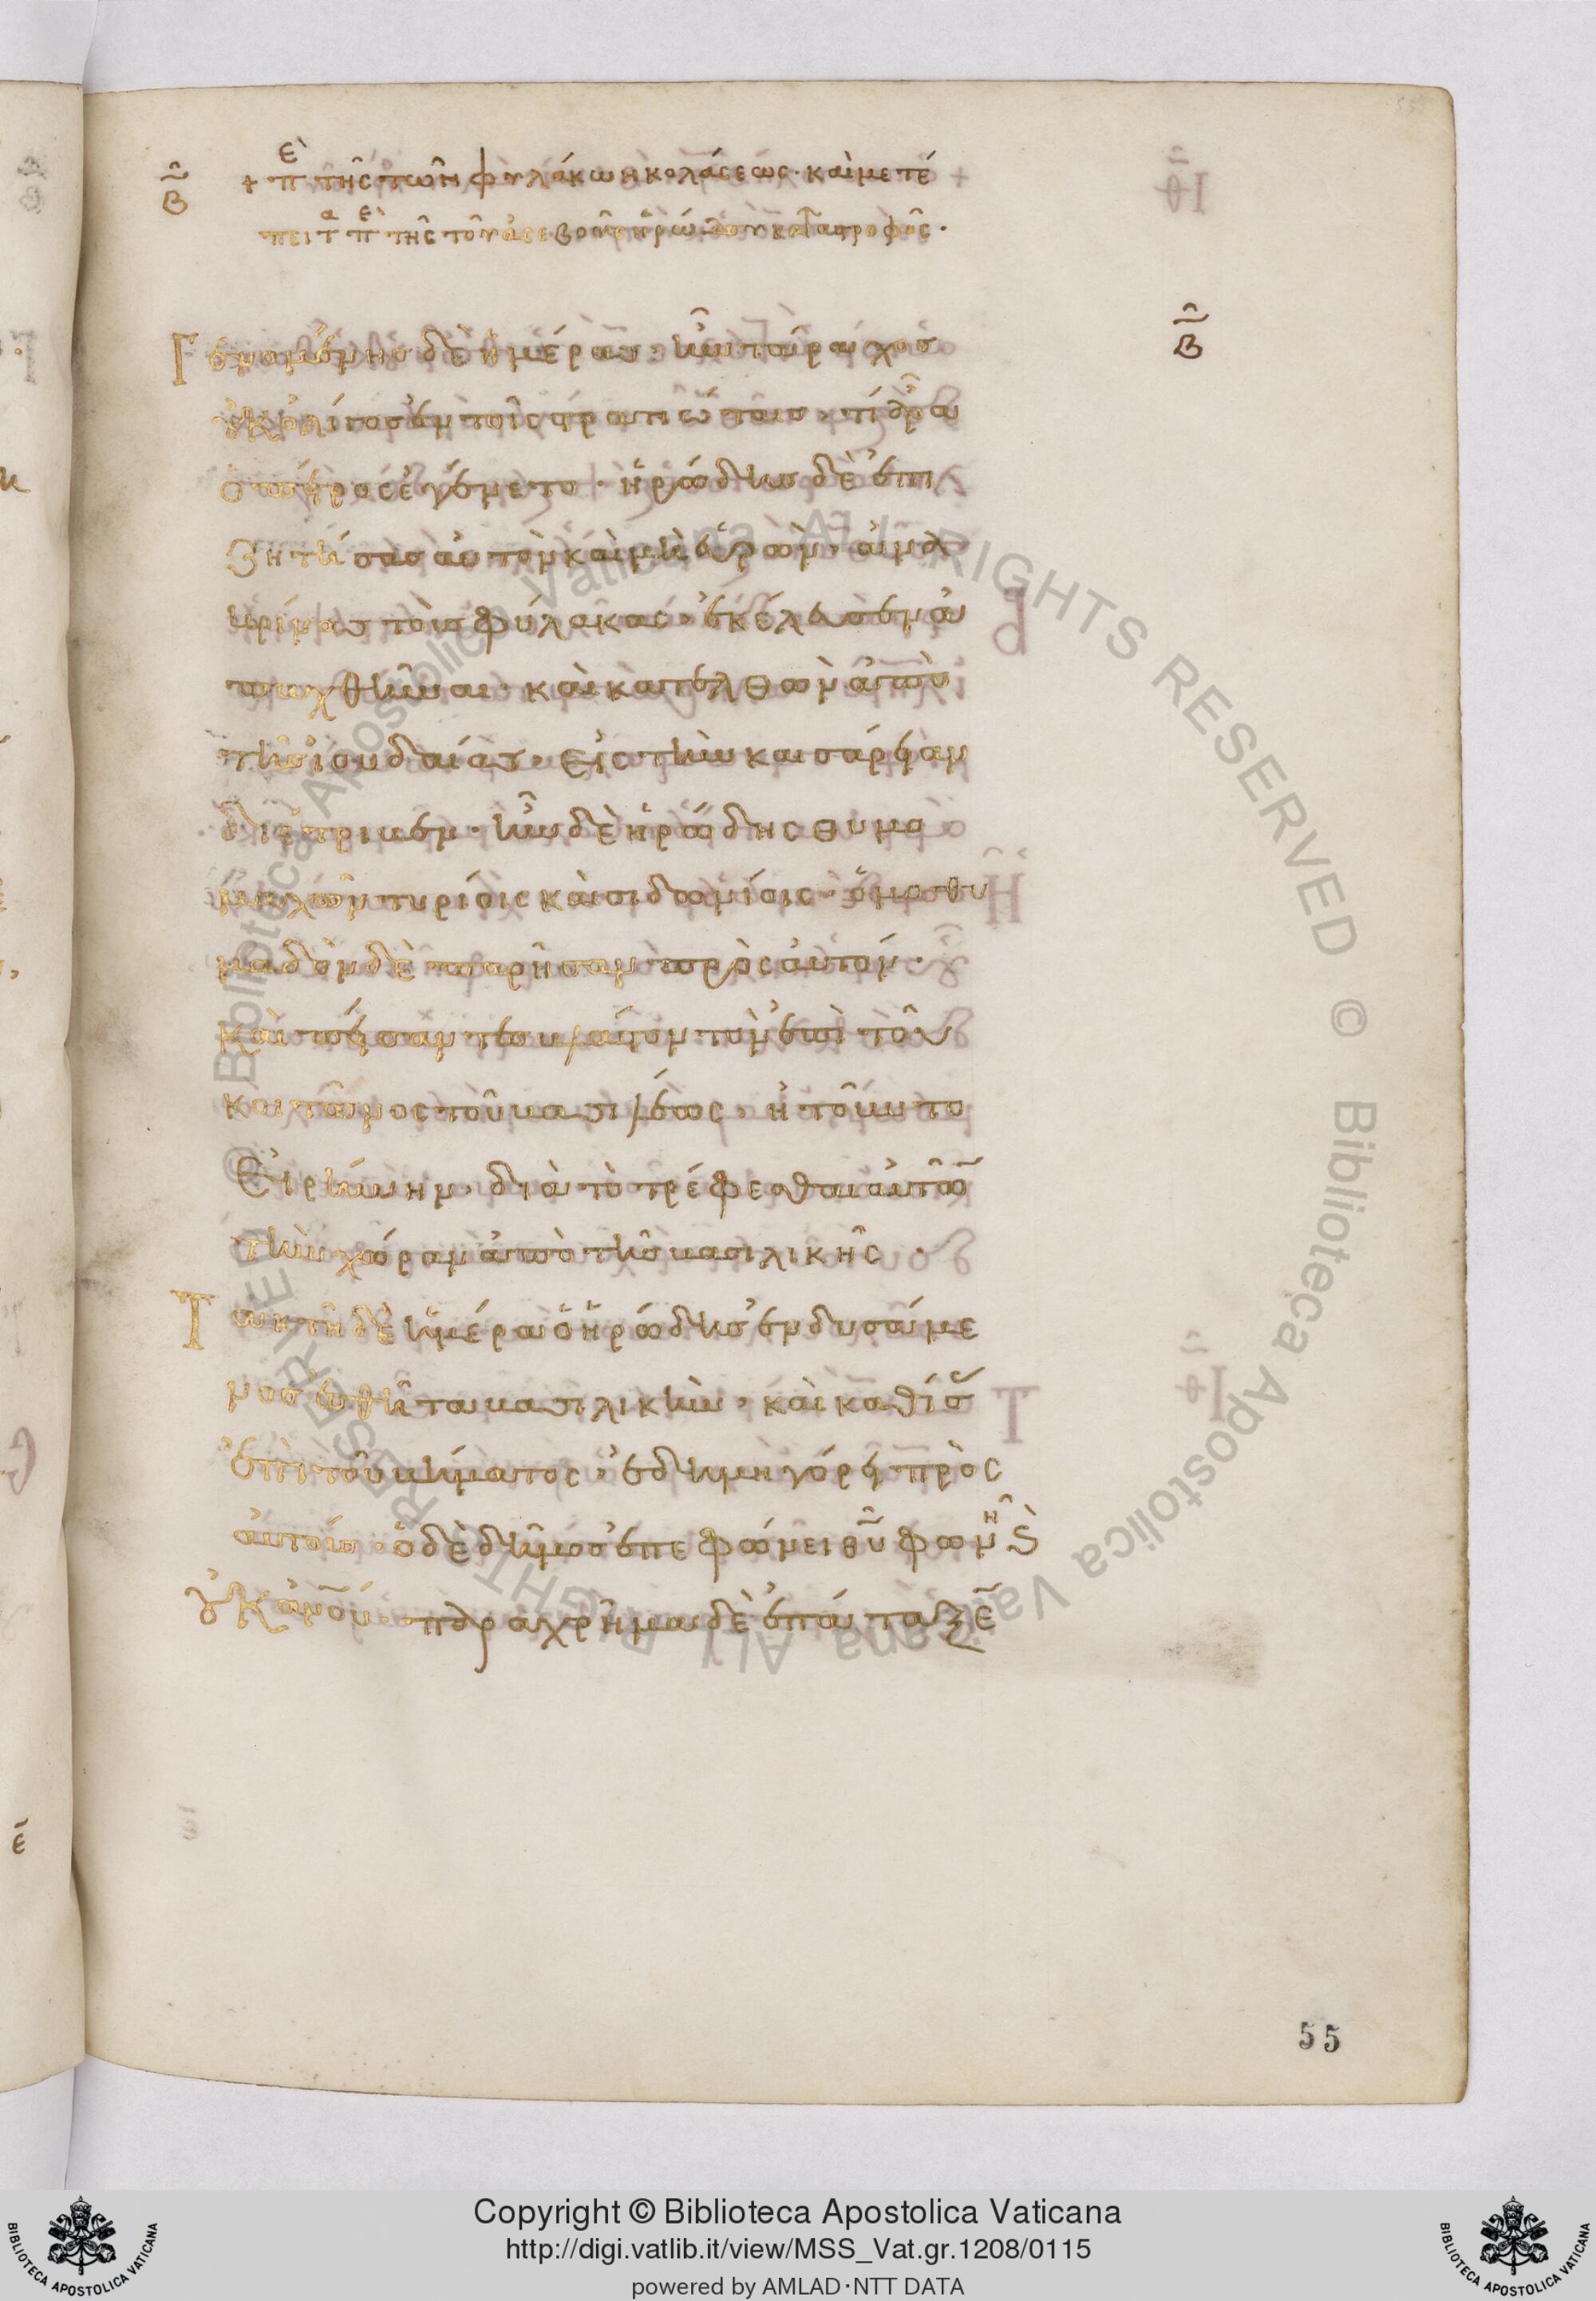 Β
+ ἐπὶ τῆς τῶν φυλάκων κολάσεως· καὶ μετέ
πειτα ἐπὶ τῆς τοῦ ἀσεβοῦς ἡρώδου καταστροφῆς·
Β
Γενομένης δὲ ἡμέρας· ἦν τάραχος
οὐκ ὀλίγος ἐν τοῖς στρατιώταις· τί ἄρα
ὁ πέτρος ἐγένετο· ἡρώδης δὲ ἐπι
ζητήσας αὐτὸν καὶ μὴ εὑρὼν· ἀνα
κρίνας τοὺς φύλακας· ἐκέλευσεν ἀ
παχθῆναι· καὶ κατελθὼν ἀπὸ
τῆς ἰουδαίας· εἰς τὴν καισάρειαν
διέτριβεν· ἦν δὲ ἡρώδης θυμο
μαχῶν τυρίοις καὶ σιδωνίοις· ὁμοθυ
μαδὸν δὲ παρῆσαν πρὸς αὐτόν·
καὶ πείσαντες βλάστον τὸν ἐπὶ τοῦ
κοιτῶνος τοῦ βασιλέως· ἠτοῦντο
εἰρήνην· διὰ τὸ τρέφεσθαι αὐτῶν
τὴν χώραν ἀπὸ τῆς βασιλικῆς·
Τακτῇ δὲ ἡμέρα ὁ ἡρώδης ἐνδυσάμε
νος ἐσθῆτα βασιλικὴν· καὶ καθίσας
ἐπὶ τοῦ βήματος· ἐδημηγόρει πρὸς
αὐτούς· ὁ δὲ δῆμος ἐπεφώνει θυ φωνὴ καὶ
οὐκ ἀνου· παραχρῆμα δὲ ἐπάταξεν
55
© Biblioteca Apostolica Vaticana ALL RIGHTS RESERVED © Biblioteca Apostolica Vaticana ALL RIGHTS RESERVED
Copyright © Biblioteca Apostolica Vaticana
http://digi.vatlib.it/view/MSS_Vat.gr.1208/0115
powered by AMLAD·NTT DATA
BIBLIOTECA APOSTOLICA VATICANA
BIBLIOTECA APOSTOLICA VATICANA